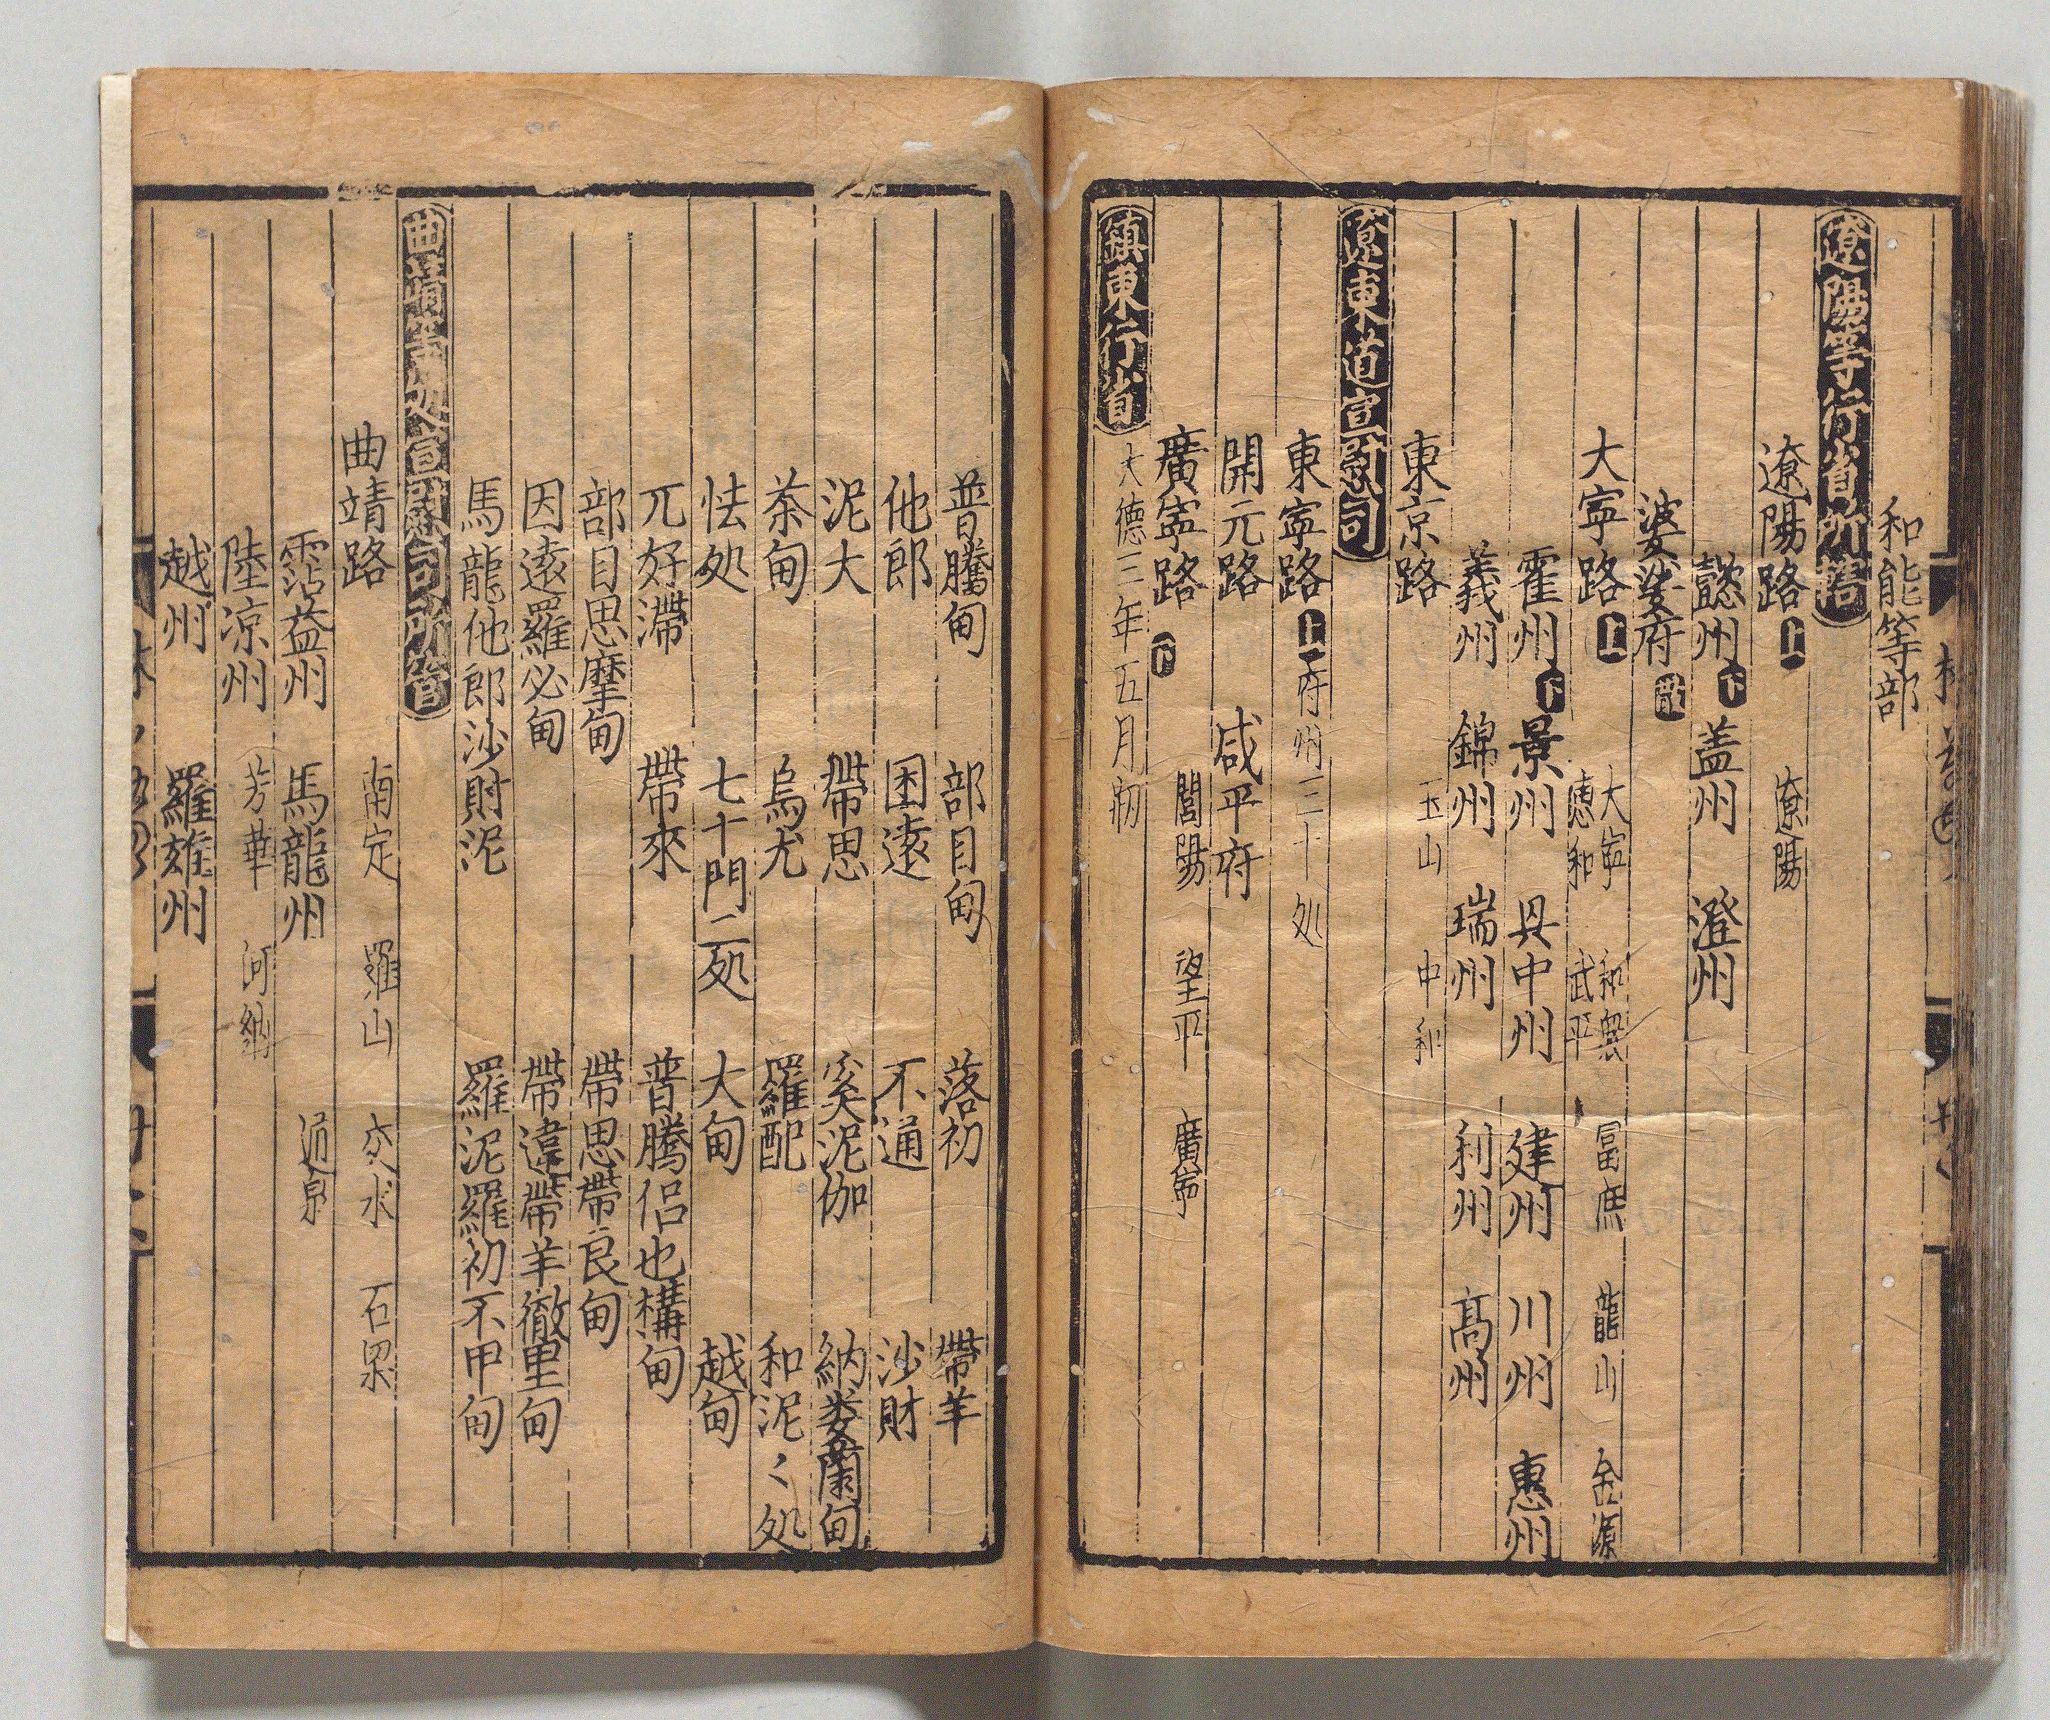 和能等部
遼陽等行省所轄
遼陽路 上 遼陽
懿州 下 蓋州 澄州
婆娑府
大寧路 上 大寧 和衆 富庶 龍山 金源
惠和 武平
霍州 下 景州 興中州 建州 川州 惠州
義州 錦州 瑞州 利州 高州
東京路 玉山 中和
遼東道宣慰司
東寧路 上 府州三十処
開元路 咸平府
廣寧路 下 閭陽 望平 廣寧
鎮東行省 大德三年五月初
普騰甸 部目甸 落初 帶羊
他郎 困遠 不通 沙財
泥大 帶思 奚泥伽 納婁蘭甸
茶甸 烏尤 羅配 和泥〻処
怯処 七十門二処 大甸 越甸
兀好滯 帶來 普騰侶也構甸
部目思摩甸 帶思帶良甸
因遠羅必甸 帶違帶羊徹里甸
馬龍他郎沙財泥 羅泥羅初不甲甸
曲靖等処宣慰司所管
曲靖路 南定 羅山 交水 石梁
霑益州 馬龍州 通泉
陸涼州 芳華 河納
越州 羅雄州